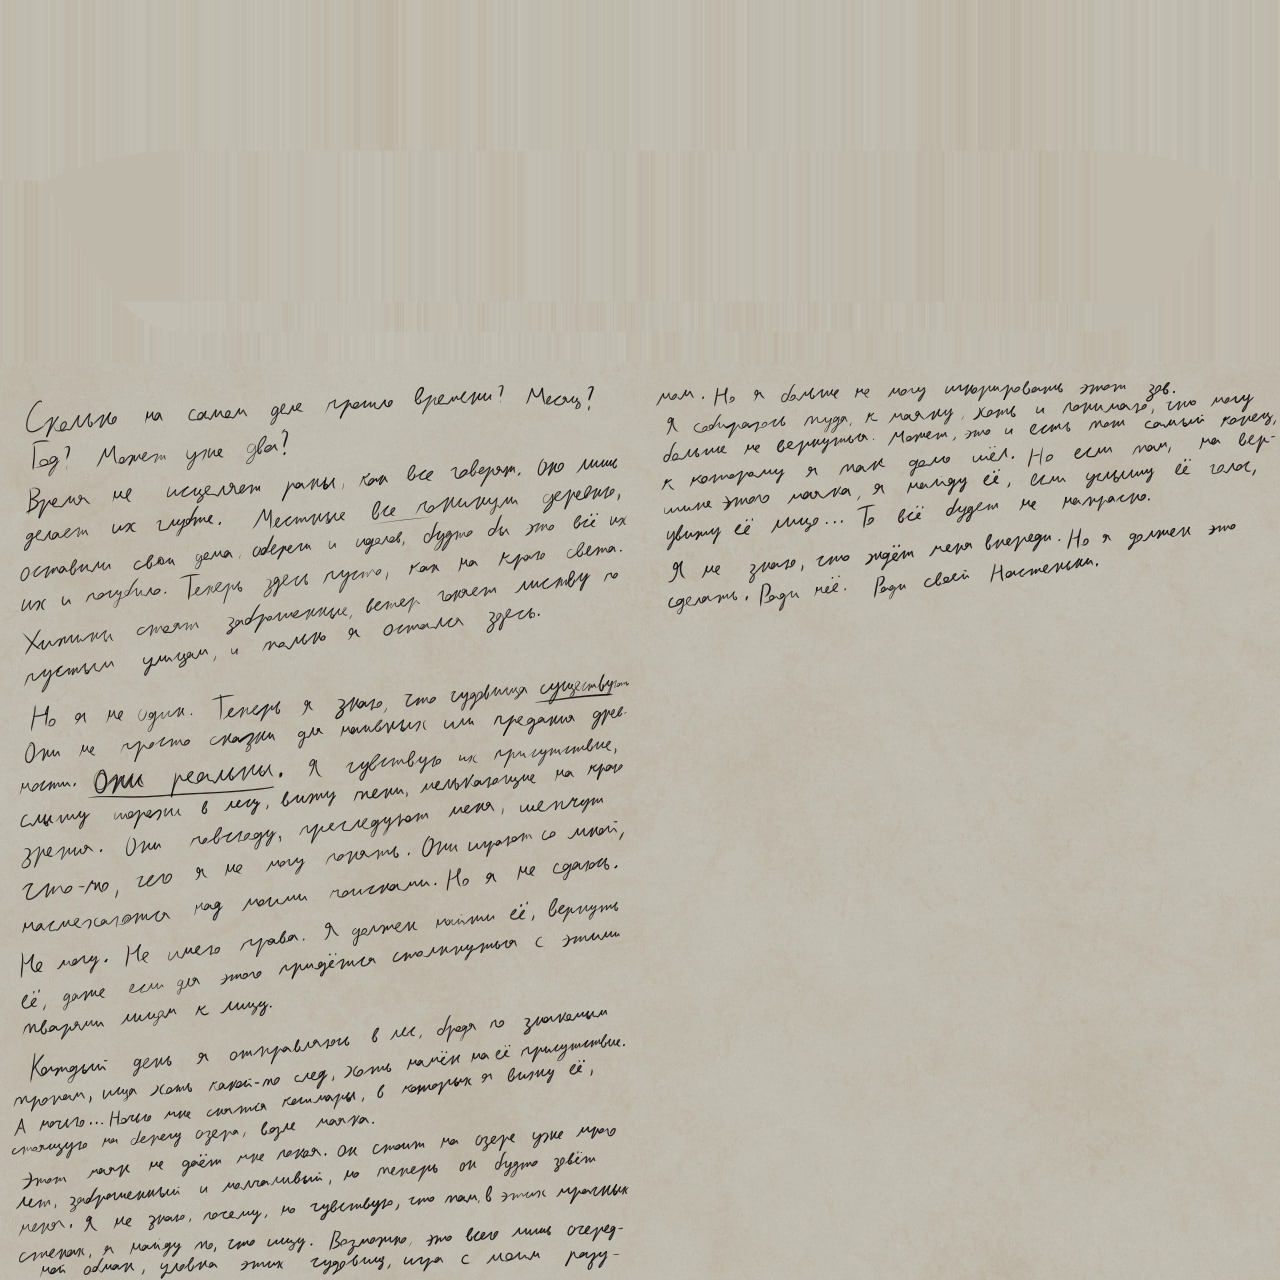 Сколько на самом деле прошло времени? Месяц?
Год? Может уже два?
Время не исцеляет раны, как все говорят. Оно лишь
делает их глубже. Местные все покинули деревню,
оставили свои дома, обереги и идолов, будто бы это всё их
их и погубило. Теперь здесь пусто, как на краю света.
Хижины стоят заброшенные, ветер гоняет листву по
пустым улицам, и только я остался здесь.
Но я не один. Теперь я знаю, что чудовища существуют.
Они не просто сказки для наивных или предания древ-
ности. Они реальны. Я чувствую их присутствие,
слышу шорохи в лесу, вижу тени, мелькающие на краю
зрения. Они повсюду, преследуют меня, шепчут
что-то, чего я не могу понять. Они играют со мной,
насмехаются над моими поисками. Но я не сдаюсь.
Не могу. Не имею права. Я должен найти её, вернуть
её, даже если для этого придётся столкнуться с этими
тварями лицом к лицу.
Каждый день я отправляюсь в лес, бродя по знакомым
тропам, ища хоть какой-то след, хоть намёк на её присутствие.
А ночью... Ночью мне снятся кошмары, в которых я вижу её,
стоящую на берегу озера, возле маяка.
Этот маяк не даёт мне покоя. Он стоит на озере уже много
лет, заброшенный и молчаливый, но теперь он будто зовёт
меня. Я не знаю, почему, но чувствую, что там, в этих мрачных
стенах, я найду то, что ищу. Возможно, это всего лишь очеред-
ной обман, уловка этих чудовищ, игра с моим разу-
мом. Но я больше не могу игнорировать этот зов.
Я собираюсь туда, к маяку, хоть и понимаю, что могу
больше не вернуться. Может, это и есть тот самый конец,
к которому я так долго шёл. Но если там, на вер-
шине этого маяка, я найду её, если услышу её голос,
увижу её лицо... То всё будет не напрасно.
Я не знаю, что ждёт меня впереди. Но я должен это
сделать. Ради неё. Ради своей Настеньки.